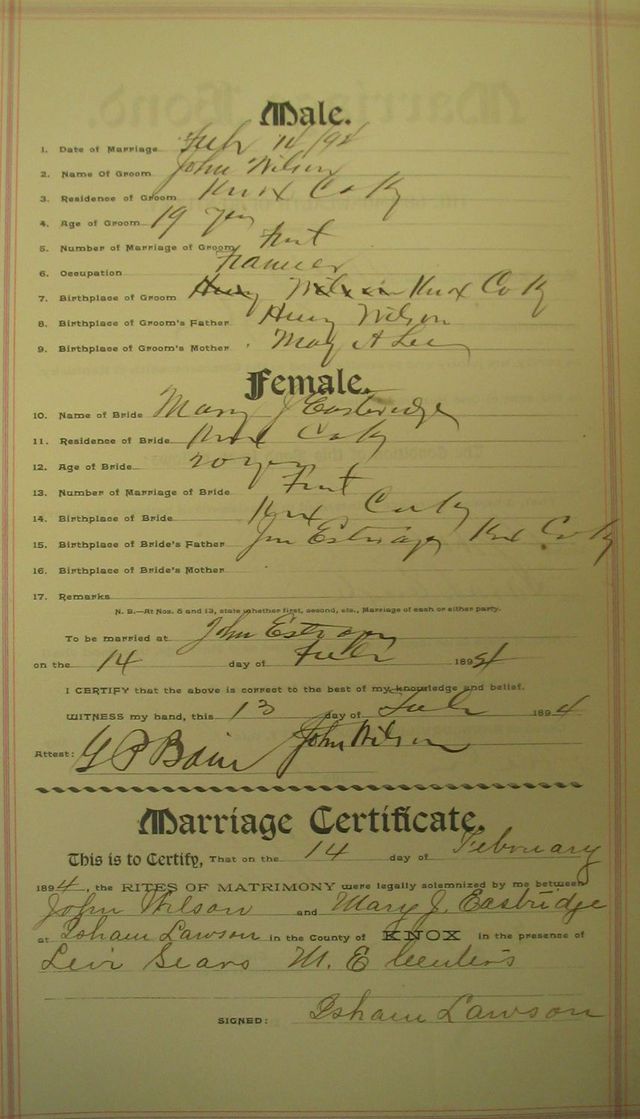 Male.
1. Date of Marriage Feb 14/94
2. Name Of Groom John Wilson
3. Residence of Groom Knox Co Ky
4. Age of Groom 19 yrs
5. Number of Marriage of Groom First
6. Occupation Farmer
7. Birthplace of Groom Henry Wilson Knox Co Ky
8. Birthplace of Groom's Father Henry Wilson
9. Birthplace of Groom's Mother Mary A Lee
Female.
10. Name of Bride Mary J Eastridge
11. Residence of Bride Knox Co Ky
12. Age of Bride 20 yrs
13. Number of Marriage of Bride First
14. Birthplace of Bride Knox Co Ky
15. Birthplace of Bride's Father Jim Knox Co Ky
16. Birthplace of Bride's Mother
17. Remarks
N. B.—At Nos. 5 and 13, state whether first, second, etc., Marriage of each or either party.
To be married at John
on the 14 day of Feb 1894
I CERTIFY that the above is correct to the best of my knowledge and belief.
WITNESS my hand, this 13 day of Feb 1894
Attest: G P Bain John Wilson
Marriage Certificate.
This is to Certify, That on the 14 day of February
1894, the RITES OF MATRIMONY were legally solemnized by me between
John Wilson and Mary J. Easbridge
at Isham Lawson in the County of KNOX in the presence of
Levi Sears M. E
SIGNED: Isham Lawson